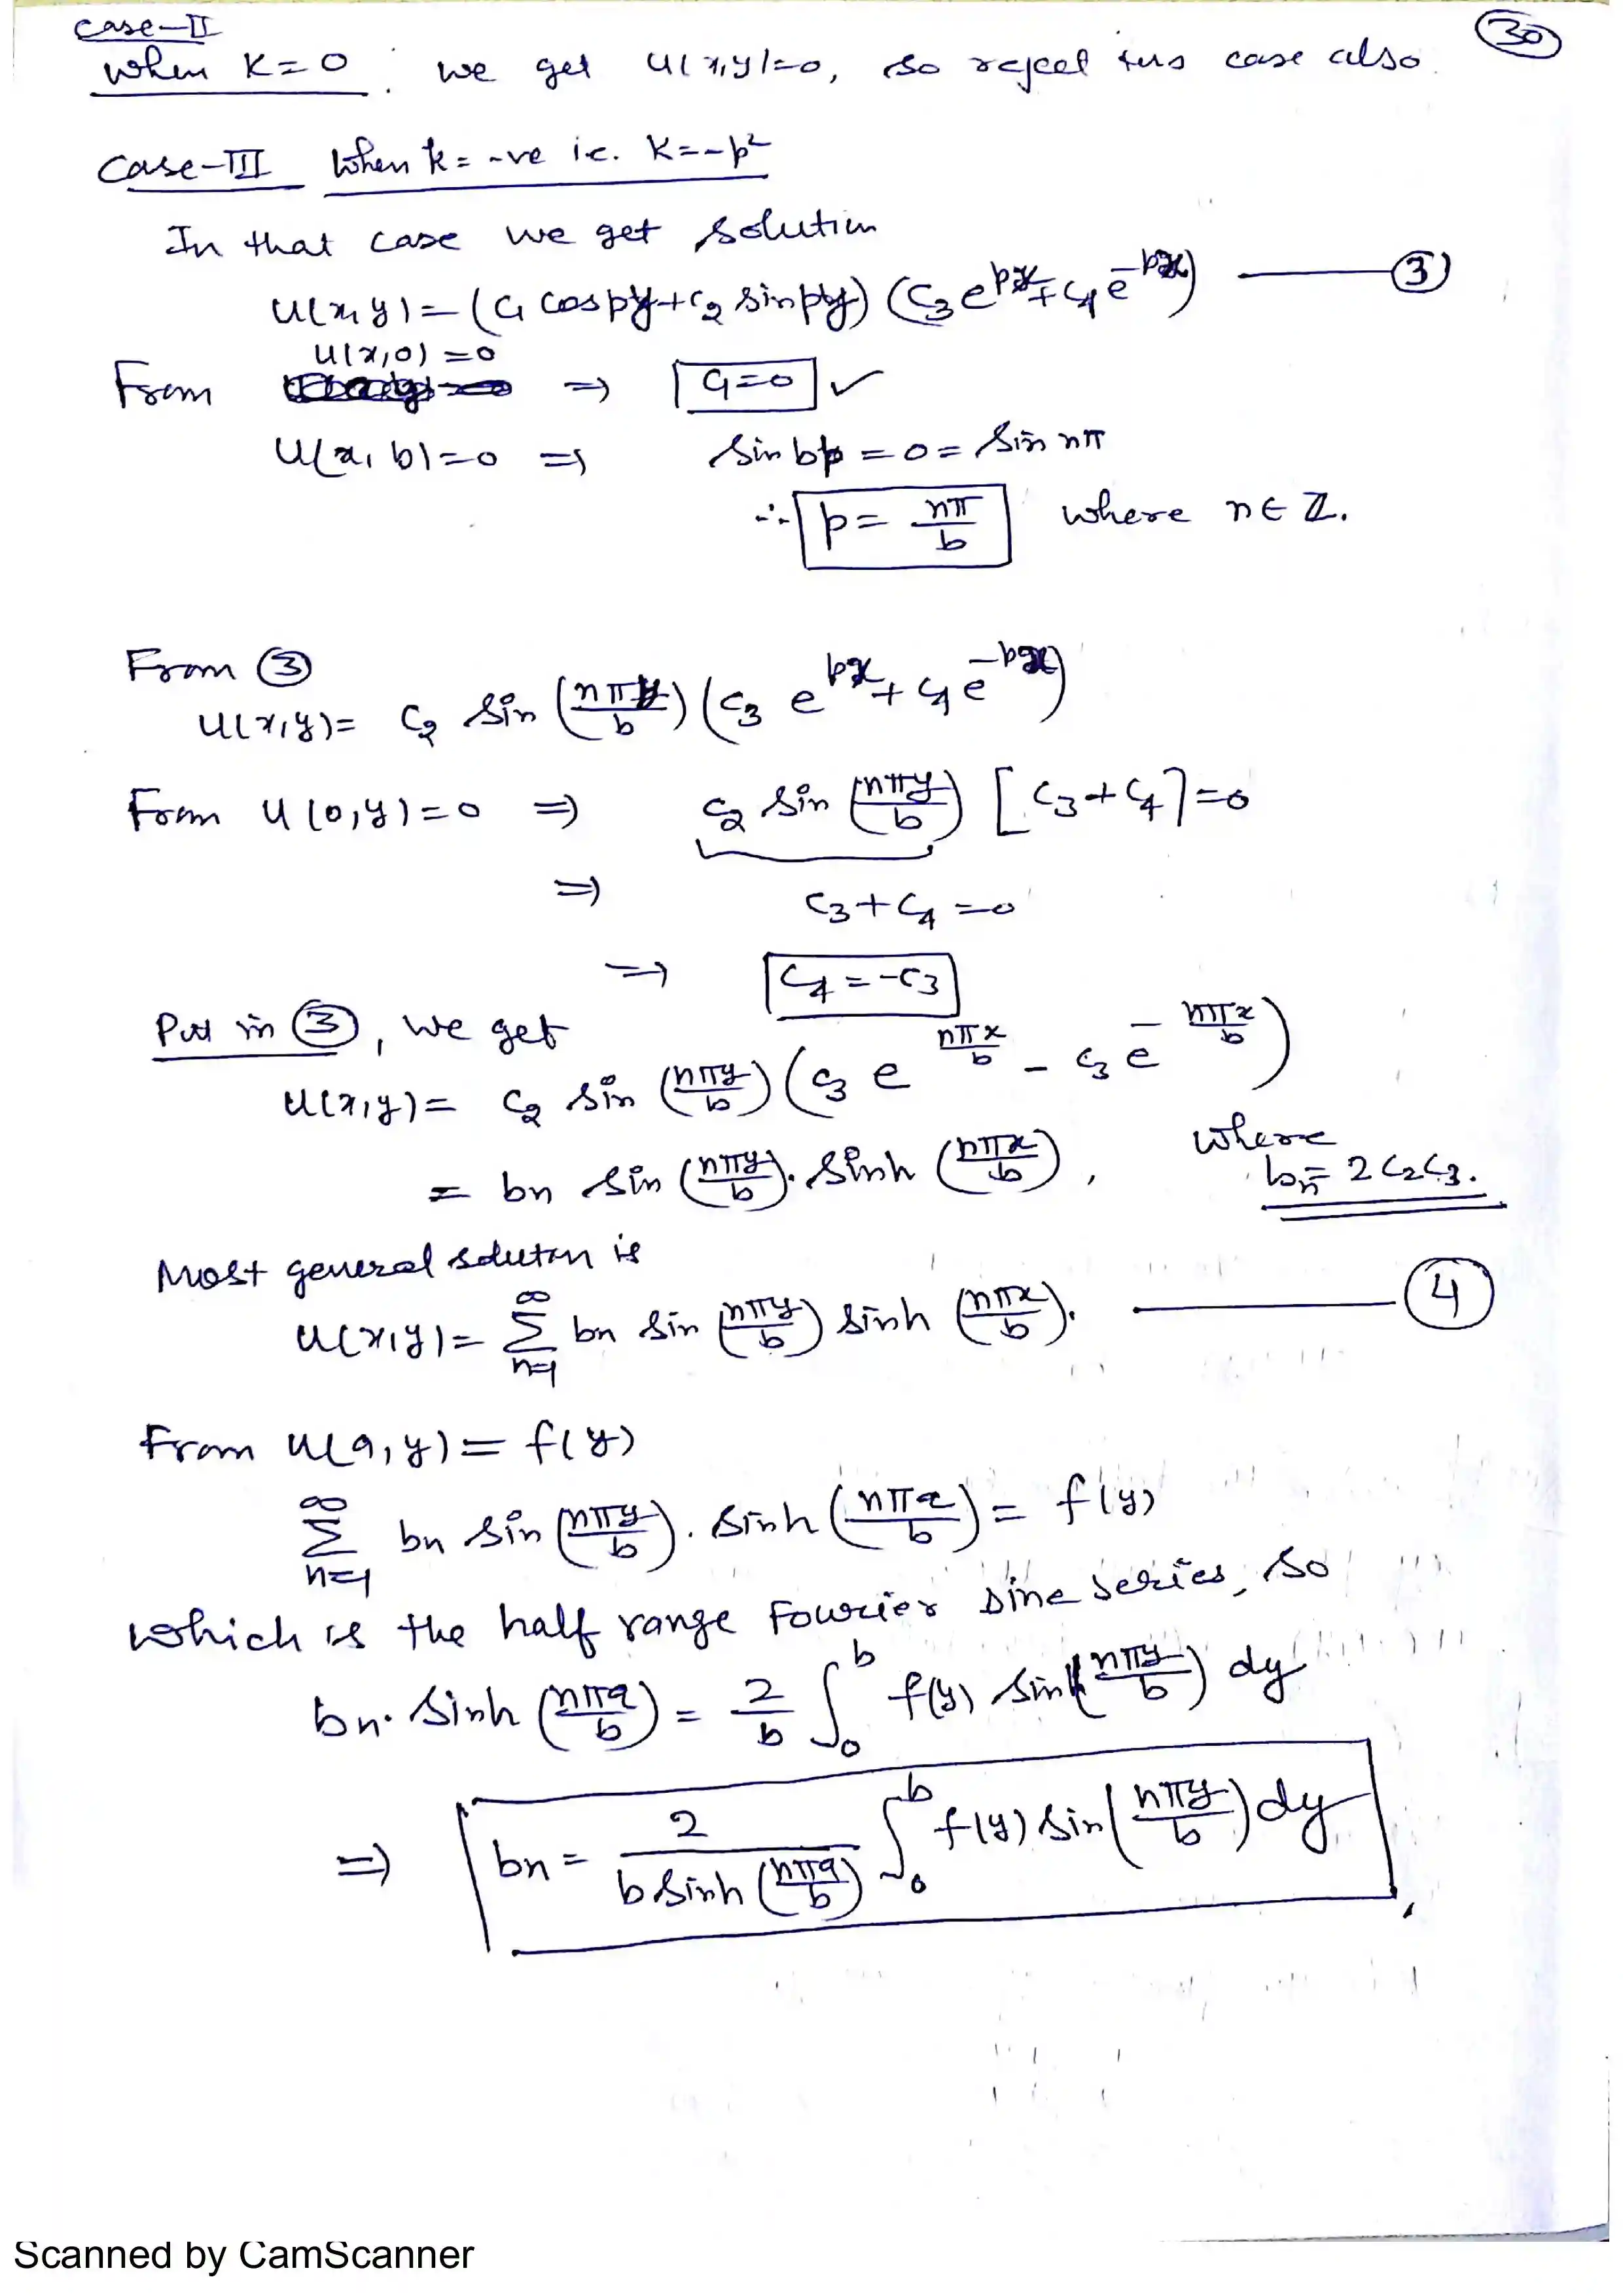 Case-II
30
When K=0 : we get u(x,y)=0, so reject this case also.
Case-III When k = -ve i.e. K=-p²
In that case we get solution
u(x,y) = (c₁ cos py + c₂ sin py) (c₃ e^{px} + c₄ e^{-px}) ——— ③
u(x,0) = 0
From ⇒ c₁=0 ✓
u(x,b)=0 ⇒ sin bp = 0 = sin nπ
∴ p = nπ/b where n ∈ ℤ.
From ③
u(x,y) = c₂ sin (nπy/b) (c₃ e^{px} + c₄ e^{-px})
From u(0,y)=0 ⇒ c₂ sin (nπy/b) [c₃+c₄]=0
⇒ c₃+c₄ =0
⇒ c₄ = -c₃
Put in ③, we get
u(x,y) = c₂ sin (nπy/b) (c₃ e^{nπx/b} - c₃ e^{-nπx/b})
= bn sin (nπy/b). sinh (nπx/b), where bn = 2c₂c₃.
Most general solution is
u(x,y) = ∑_{n=1}^{∞} bn sin (nπy/b) sinh (nπx/b). ——— ④
From u(a,y) = f(y)
∑_{n=1}^{∞} bn sin (nπy/b). sinh (nπa/b) = f(y)
which is the half range Fourier sine series, so
bn. sinh (nπa/b) = 2/b ∫₀^b f(y) sin (nπy/b) dy
⇒ bn = 2/(b sinh (nπa/b)) ∫₀^b f(y) sin (nπy/b) dy,
Scanned by CamScanner